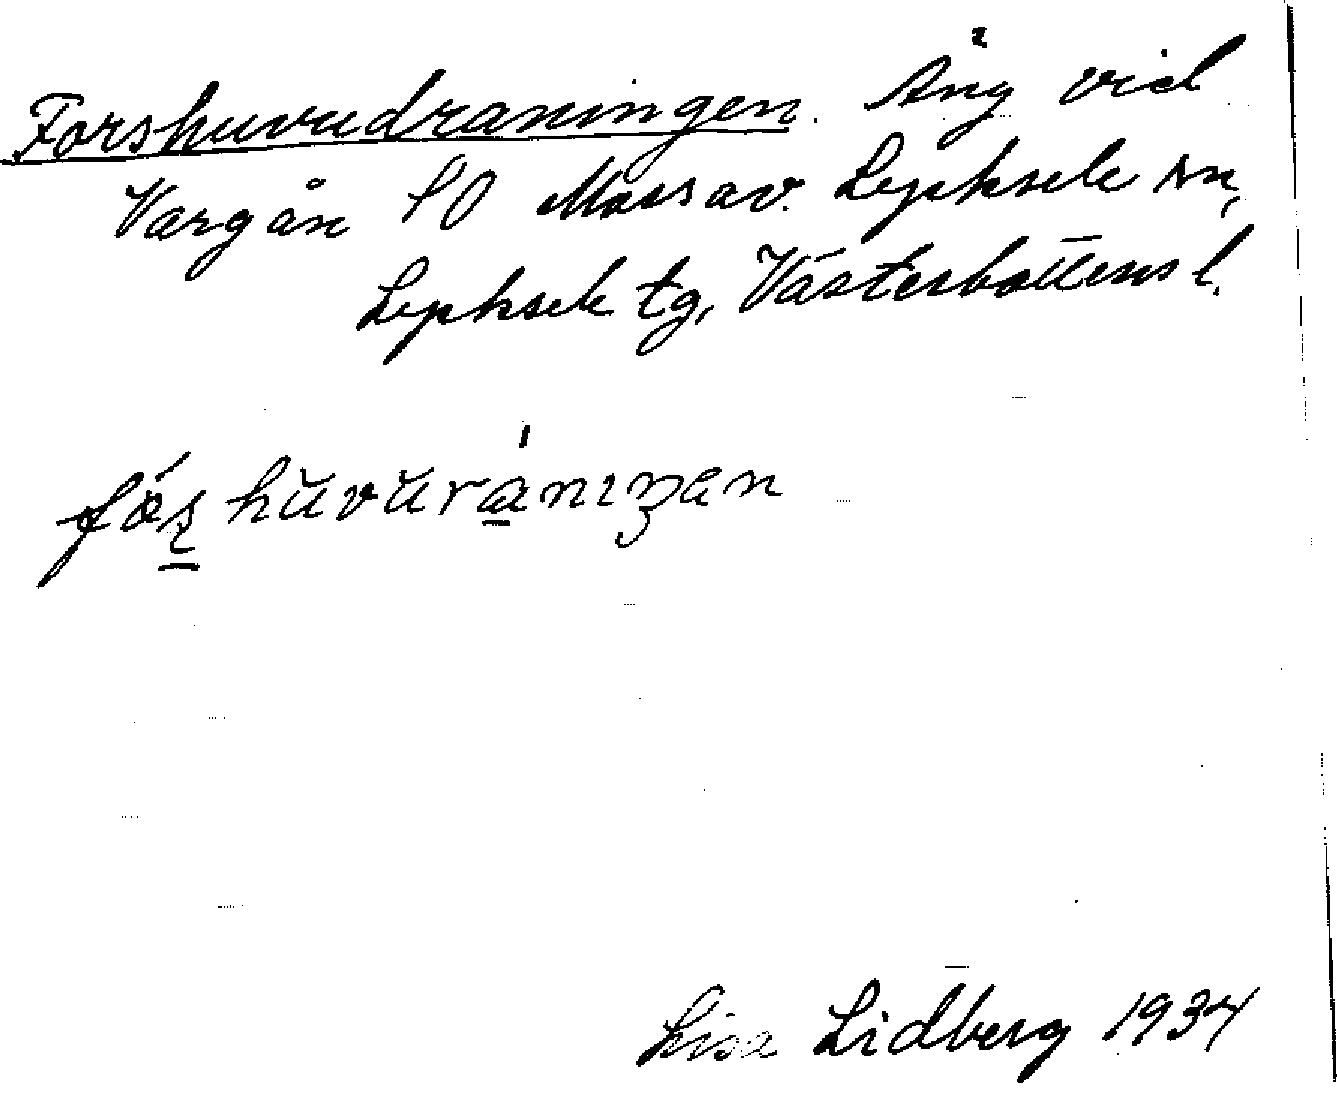 Forshuvudraningen. Äng vid
Vargån SO Mossav. Lycksele sn,
Lycksele tg, Västerbottens l.
fórs hŭvŭrànıŋan
Lisa Lidberg 1934